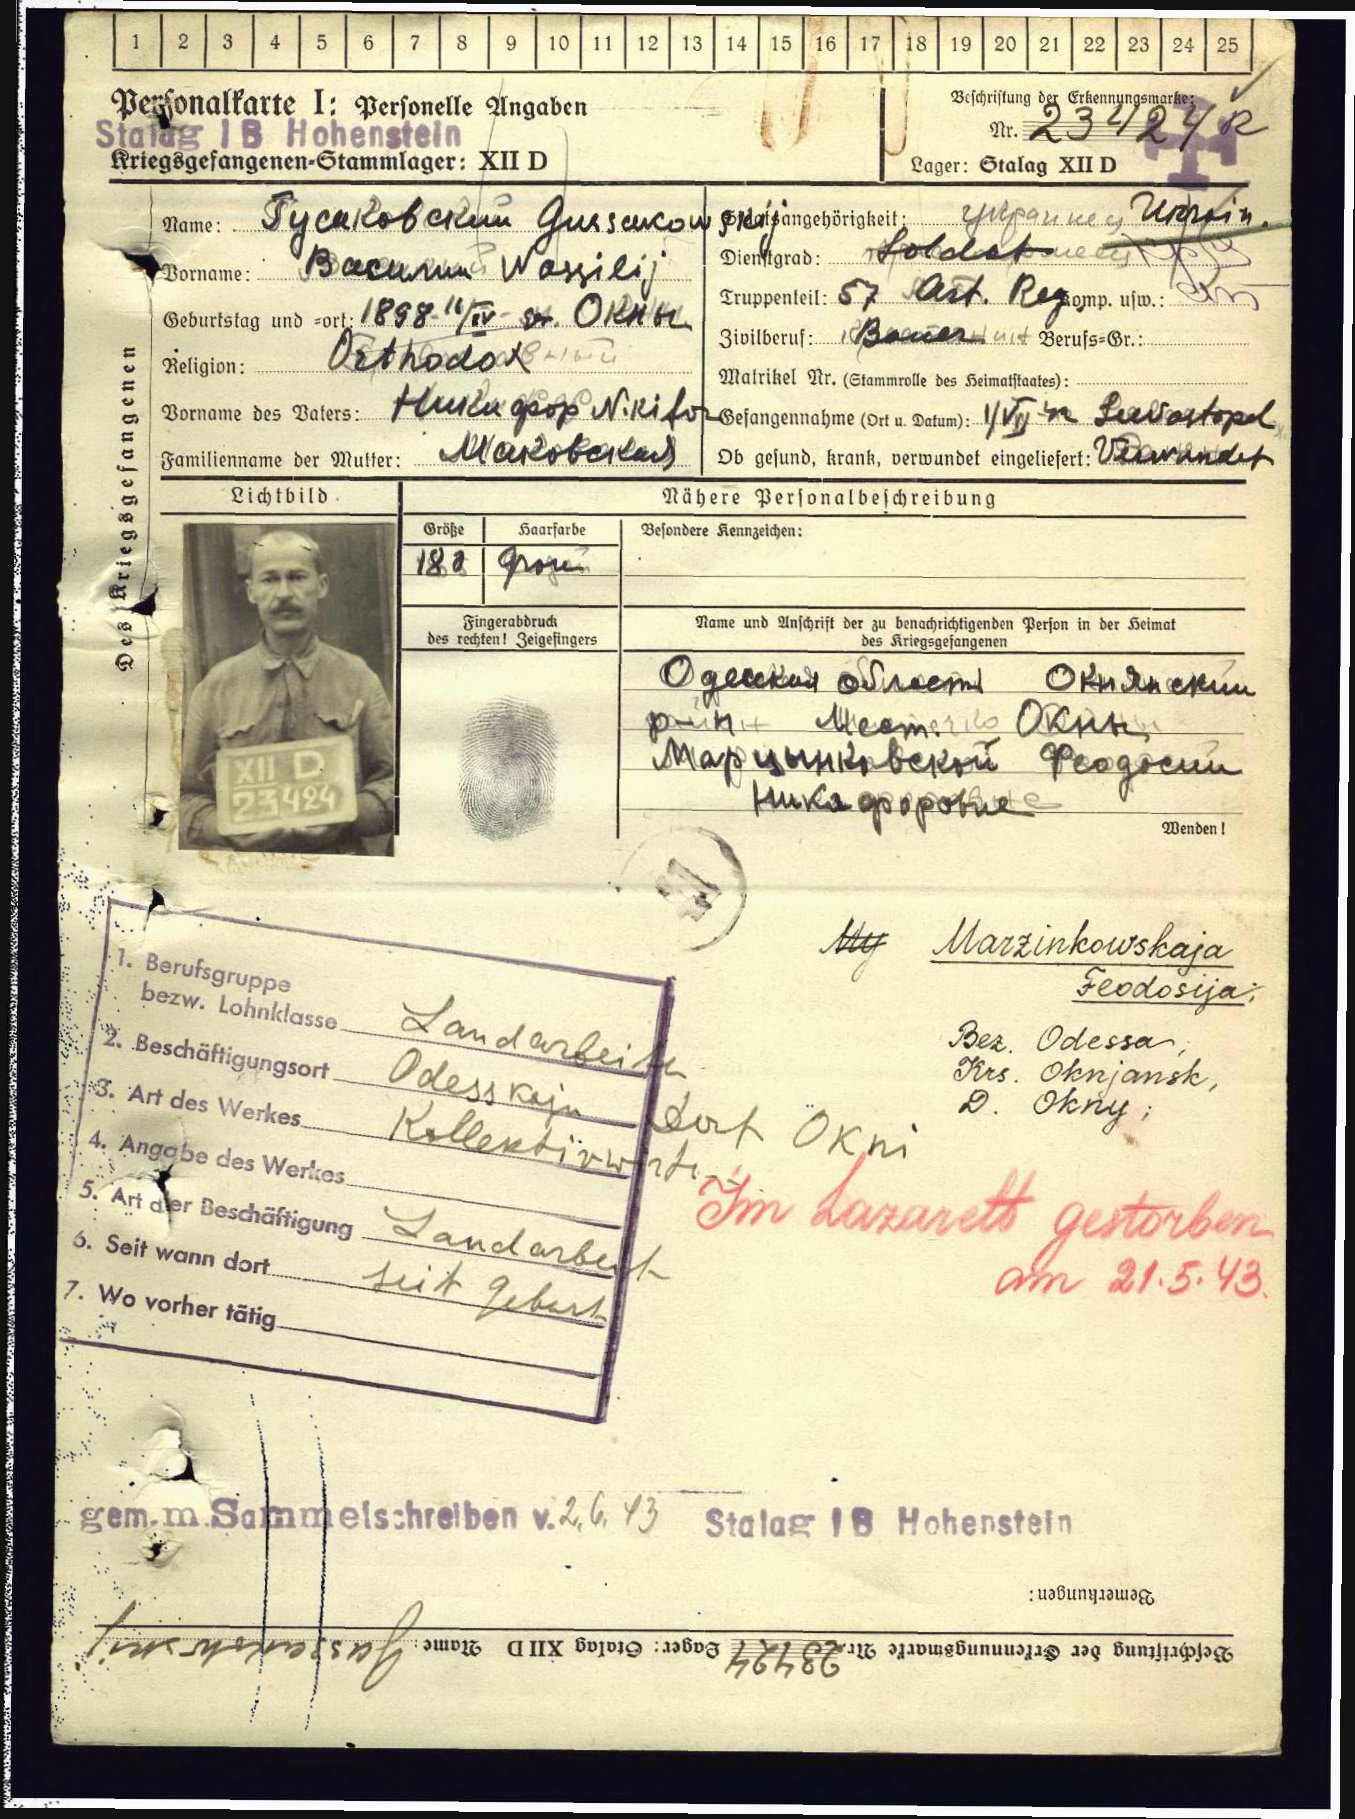 1 2 3 4 5 6 7 8 9 10 11 12 13 14 15 16 17 18 19 20 21 22 23 24 25
Personalkarte I: Personelle Angaben
Stalag IB Hohenstein
Kriegsgefangenen-Stammlager: XII D
Beschriftung der Erkennungsmarke:
Nr. 23424 R
Lager: Stalag XII D
Des Kriegsgefangenen
Name: Гусаковский Gussakowskij
Vorname: Василий Wassilij
Geburtstag und -ort: 1898 16/IV Окны
Religion: Orthodox
Vorname des Vaters: Никифор Nikifor
Familienname der Mutter: Маковская
Staatsangehörigkeit: украинец Ukrain.
Dienstgrad: Soldat
Truppenteil: 57 Art. Reg Komp. usw.:
Zivilberuf: Bauer Berufs-Gr.:
Matrikel Nr. (Stammrolle des Heimatstaates):
Gefangennahme (Ort u. Datum): 1/VII 42 Sewastopol
Ob gesund, krank, verwundet eingeliefert: Verwundet
Lichtbild
Nähere Personalbeschreibung
Größe
Haarfarbe
Besondere Kennzeichen:
XII D
23424
Fingerabdruck
des rechten! Zeigefingers
Name und Anschrift der zu benachrichtigenden Person in der Heimat
des Kriegsgefangenen
Одесская область Окнянский
р-н Мест. Окны,
Марцынковской Феодосии
Никифоровне
Wenden!
My Marzinkowskaja
Feodosija;
Bez. Odessa,
Krs. Oknjansk,
D. Okny;
1. Berufsgruppe
bezw. Lohnklasse Landarbeiter
2. Beschäftigungsort Odesskaja Dorf Okni
3. Art des Werkes Kollektivwirts.
4. Angabe des Werkes
5. Art der Beschäftigung Landarbeit
6. Seit wann dort seit Geburt
7. Wo vorher tätig
Im Lazarett gestorben
am 21.5.43.
gem. m. Sammelschreiben v. 2.6.43 Stalag IB Hohenstein
Bemerkungen:
Beschriftung der Erkennungsmarke Nr. 23424 Lager: Stalag XII D Name: Gussakowskij